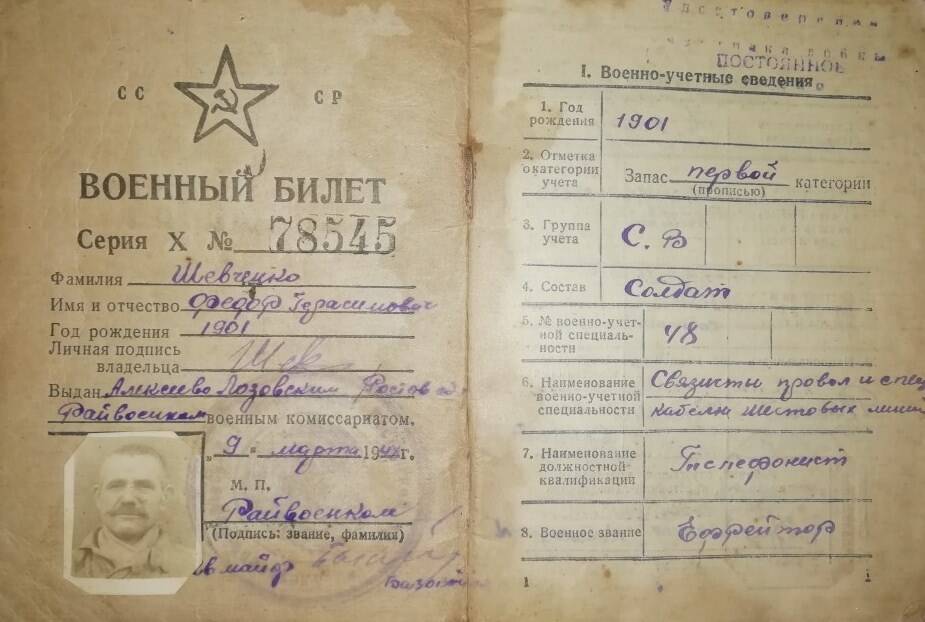 СС СР
ВОЕННЫЙ БИЛЕТ
Серия X № 78545
Фамилия Шевченко
Имя и отчество Федор Герасимович
Год рождения 1901
Личная подпись
владельца Шев
Выдан Алексеево Лозовским Ростов
Райвоенком военным комиссариатом.
„9" марта 194 г.
М. П.
Райвоенком
(Подпись: звание, фамилия)
майор
ПОСТОЯННОЕ
I. Военно-учетные сведения
1. Год
рождения 1901
2. Отметка
о категории
учета Запас первой категории
(прописью)
3. Группа
учета С. В
4. Состав Солдат
5. № военно-учет-
ной специаль-
ности 48
6. Наименование
военно-учетной
специальности Связисты
кабельн шестовых линий
7. Наименование
должностной
квалификации Телефонист
8. Военное звание Ефрейтор
1